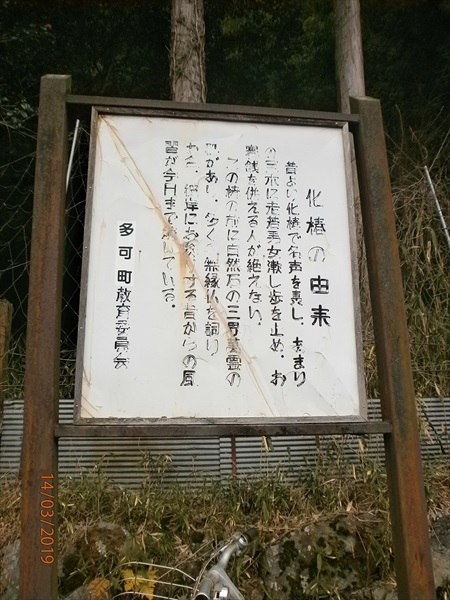 化椿の由来
昔よい化椿で名声を表し、あまり
の 老若男女激し歩を止め、お
賽銭を供える人が絶えない。
この椿の に自然石の三界万霊の
があり、多くの無縁仏を詞り
お参りする昔からの風
習が今日まで続いている。
多可町教育委員会
14/03/2019